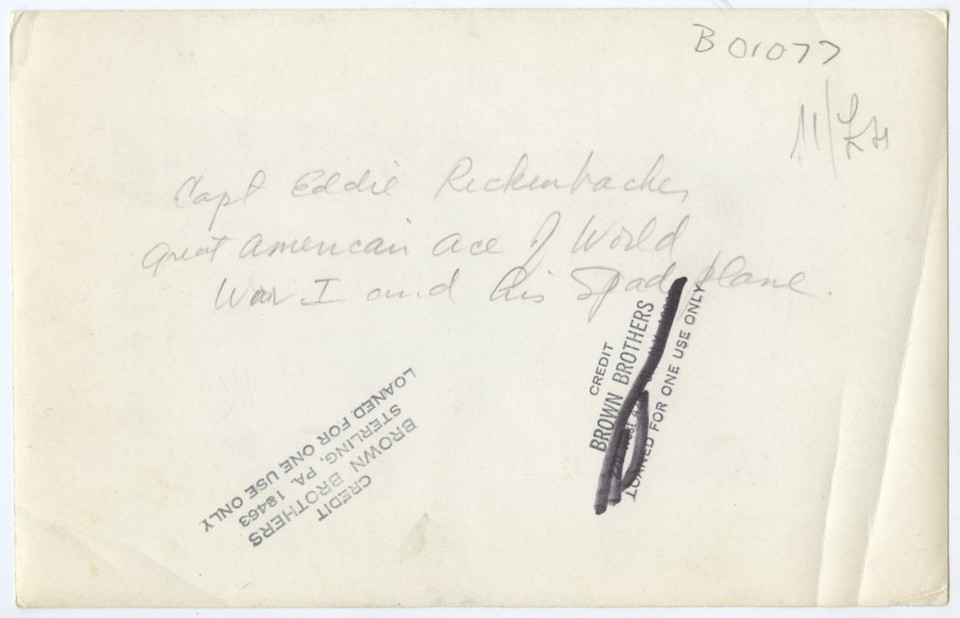 B 01077
Capt Eddie Rickenbacker
great American ace of World
War I and his Spad plane.
CREDIT
BROWN BROTHERS
LOANED FOR ONE USE ONLY
CREDIT
BROWN BROTHERS
STERLING, PA. 18463
LOANED FOR ONE USE ONLY